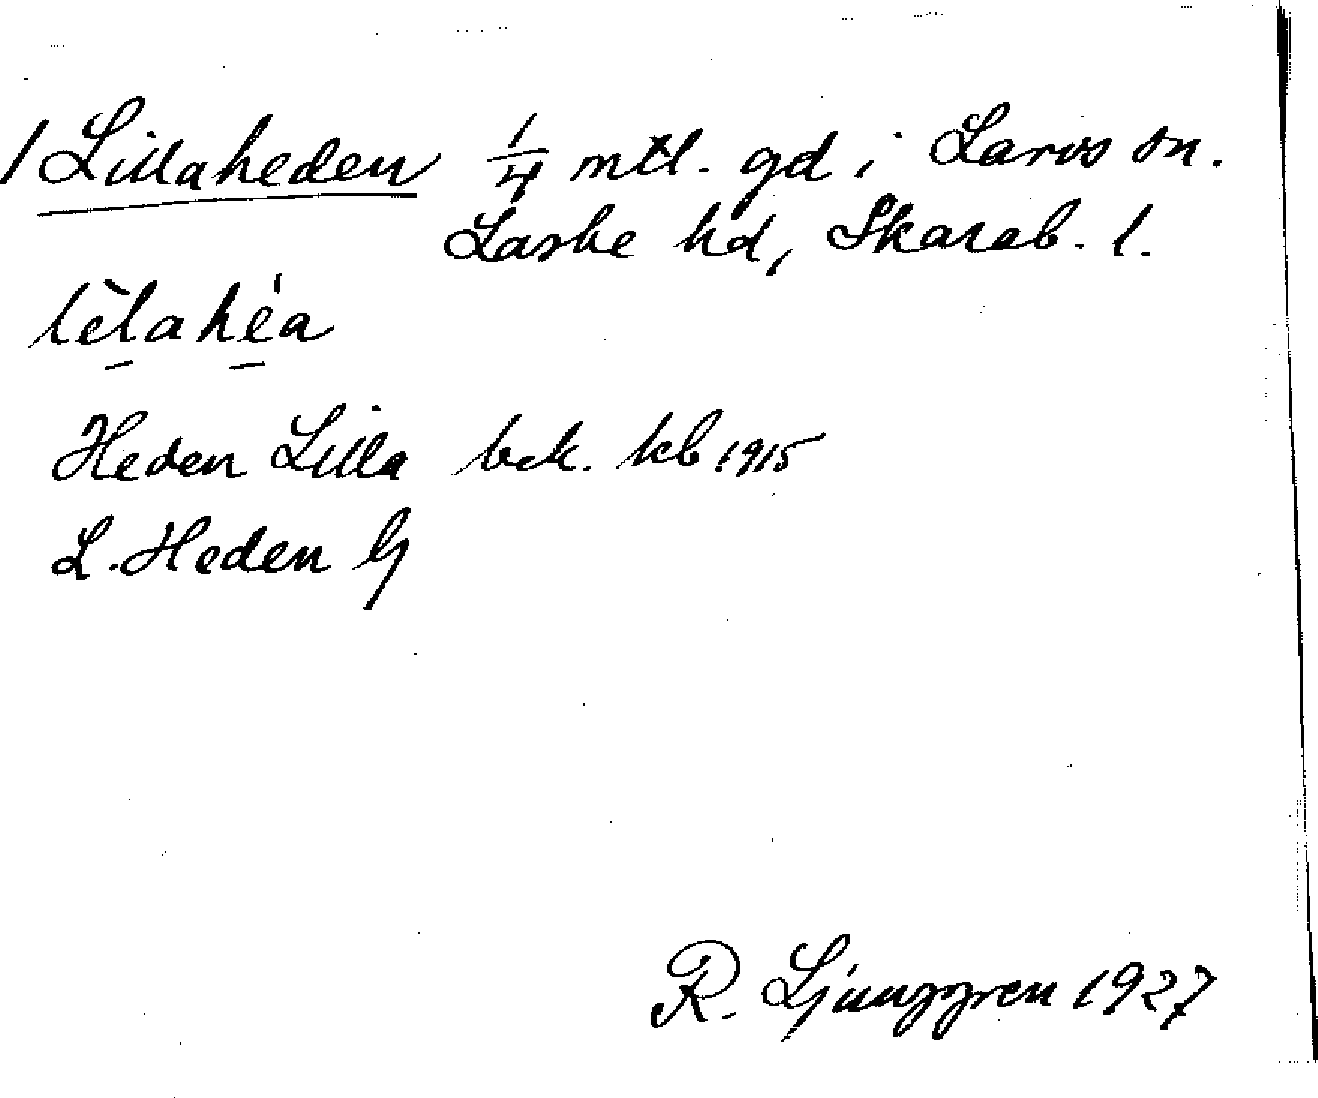 / Lillaheden 1/4 mtl. gd i Larvs sn.
Laske hd, Skarab. l.
lèlahéa
Heden Lilla bek. kb 1915
L. Heden G
R. Ljunggren 1927